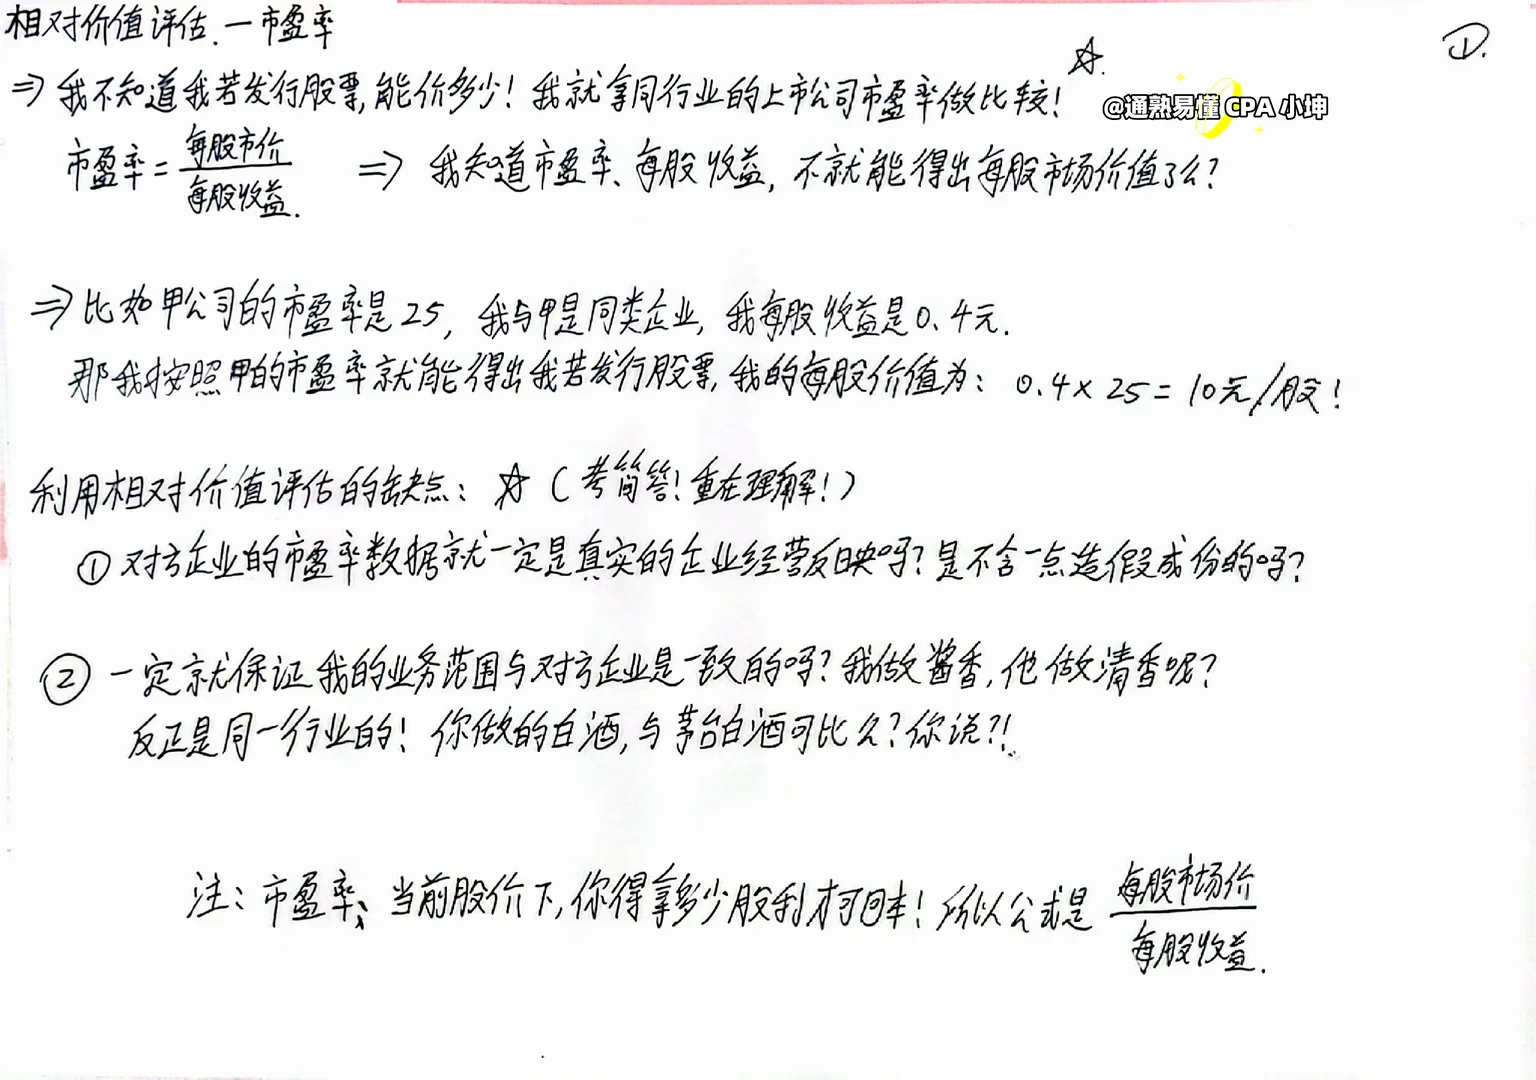 相对价值评估.—市盈率
①.
☆.
⇒ 我不知道我若发行股票,能价多少!我就拿同行业的上市公司市盈率做比较!
@通熟易懂 CPA 小坤
市盈率 = 每股市价 / 每股收益. ⇒ 我知道市盈率、每股收益,不就能得出每股市场价值了么?
⇒ 比如甲公司的市盈率是25,我与甲是同类企业,我每股收益是0.4元.
那我按照甲的市盈率就能得出我若发行股票,我的每股价值为:0.4×25=10元/股!
利用相对价值评估的缺点:☆(考简答!重在理解!)
① 对方企业的市盈率数据就一定是真实的企业经营反映吗?是不含一点造假成份的吗?
② 一定就保证我的业务范围与对方企业是一致的吗?我做酱香,他做清香呢?
反正是同一行业的!你做的白酒,与茅台白酒可比么?你说?!
注:市盈率、当前股价下,你得拿多少股利才可回本!所以公式是 每股市场价 / 每股收益.